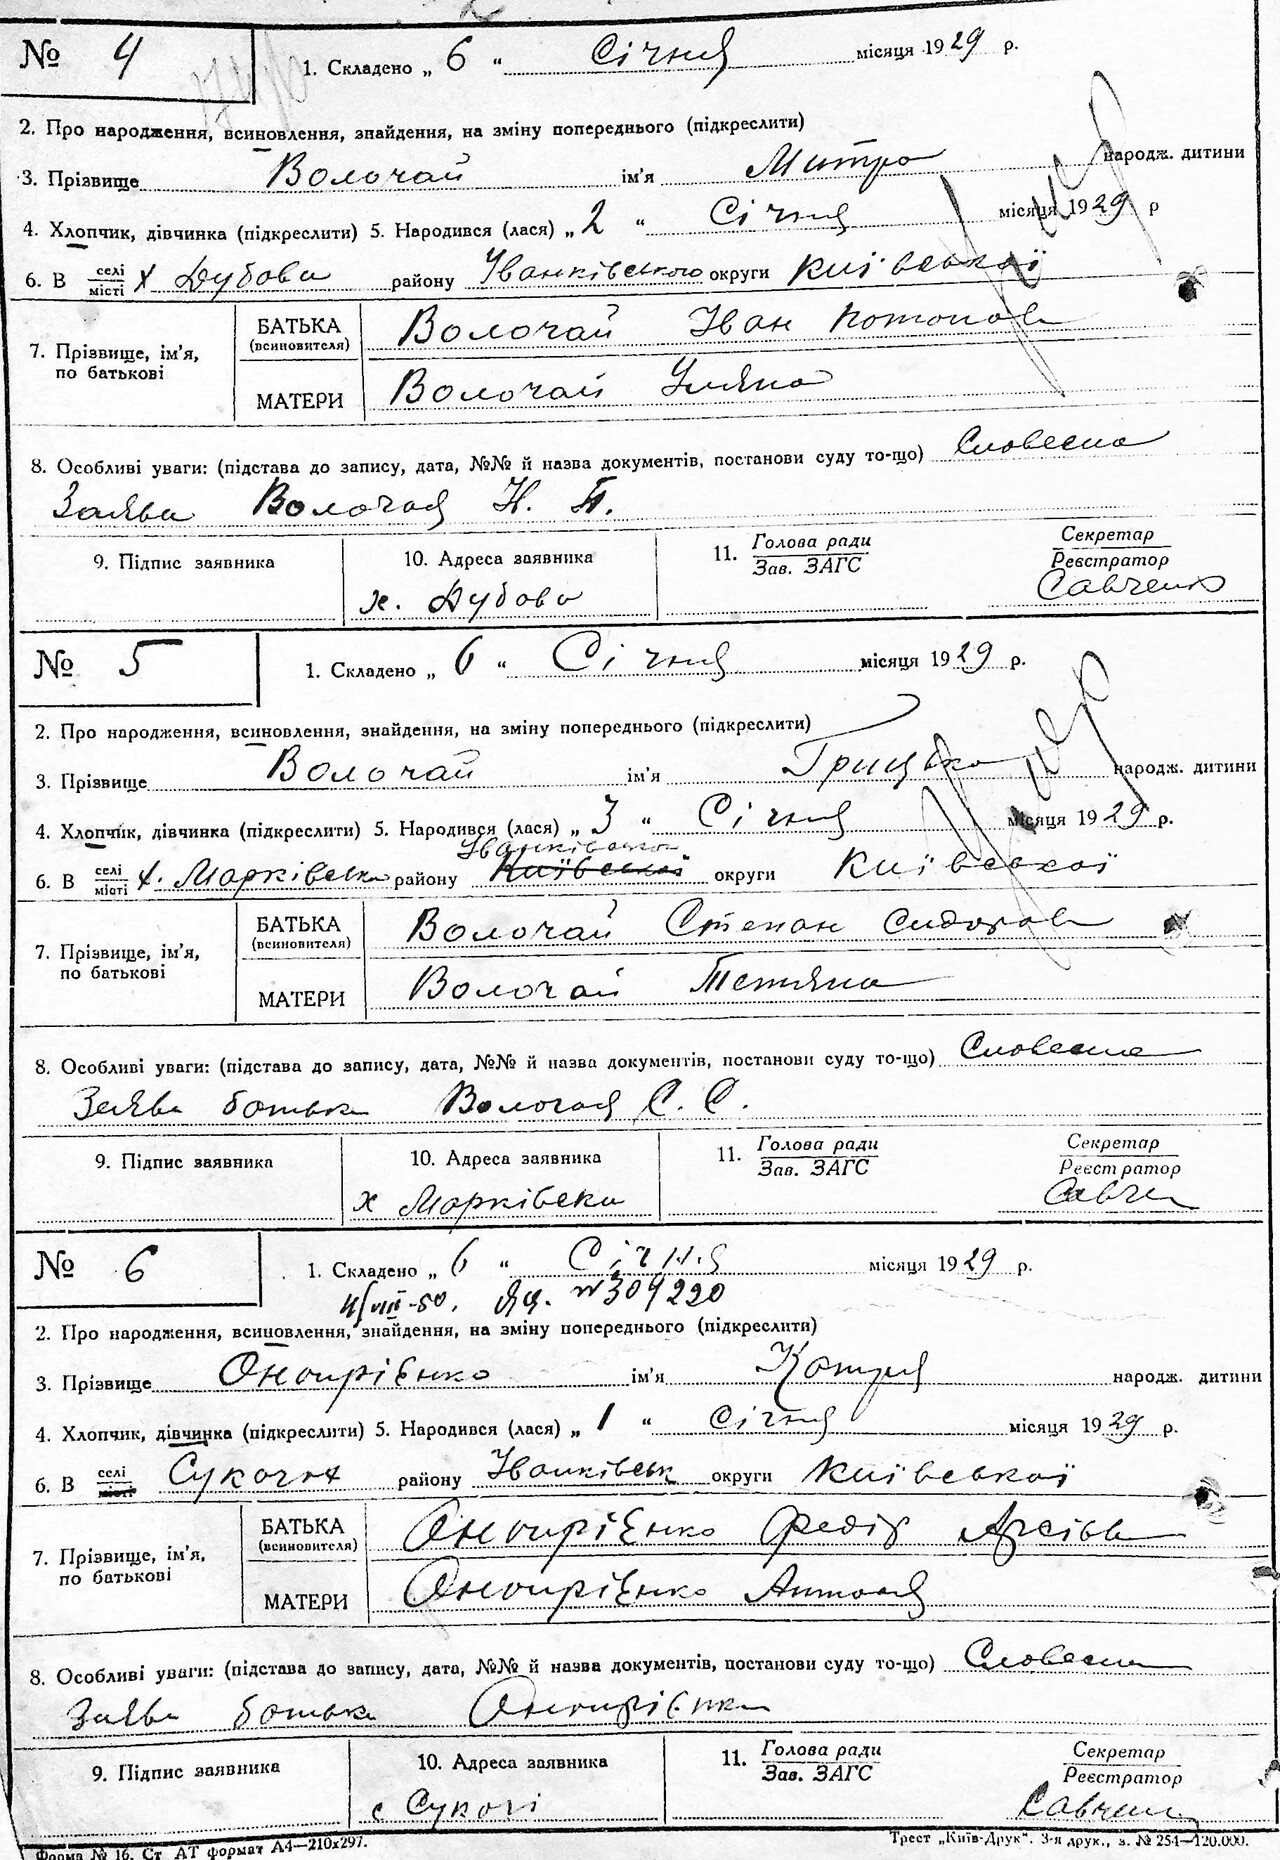 № 4
1. Складено „ 6 “ Січня місяця 1929 р.
2. Про народження, всиновлення, знайдення, на зміну попереднього (підкреслити)
3. Прізвище Волочай ім'я Митро народж. дитини
4. Хлопчик, дівчинка (підкреслити) 5. Народився (лася) „ 2 “ Січня місяця 1929 р
6. В селі місті х Дубова району Іванківського округи Київської
7. Прізвище, ім'я, по батькові
БАТЬКА (всиновителя) Волочай Іван
МАТЕРИ Волочай Уляна
8. Особливі уваги: (підстава до запису, дата, №№ й назва документів, постанови суду то-що) Словесна
Заява Волочая
9. Підпис заявника
10. Адреса заявника
х. Дубова
11. Голова ради Зав. ЗАГС
Секретар Реєстратор
Савченко
№ 5
1. Складено „ 6 “ Січня місяця 1929 р.
2. Про народження, всиновлення, знайдення, на зміну попереднього (підкреслити)
3. Прізвище Волочай ім'я Грицько народж. дитини
4. Хлопчик, дівчинка (підкреслити) 5. Народився (лася) „ 3 “ Січня місяця 1929 р.
6. В селі місті х. Марківська району Київської округи Київської
7. Прізвище, ім'я, по батькові
БАТЬКА (всиновителя) Волочай Степан Сидоров
МАТЕРИ Волочай Тетяна
8. Особливі уваги: (підстава до запису, дата, №№ й назва документів, постанови суду то-що) Словесна
Заява батька Волочая С. С.
9. Підпис заявника
10. Адреса заявника
х Марківска
11. Голова ради Зав. ЗАГС
Секретар Реєстратор
№ 6
1. Складено „ 6 “ Січня місяця 1929 р.
4/VIII-50. №304220
2. Про народження, всиновлення, знайдення, на зміну попереднього (підкреслити)
3. Прізвище Оноприєнко ім'я Котря народж. дитини
4. Хлопчик, дівчинка (підкреслити) 5. Народився (лася) „ 1 “ січня місяця 1929 р.
6. В селі місті Сукачях району Іванківськ округи Київської
7. Прізвище, ім'я, по батькові
БАТЬКА (всиновителя) Оноприєнко Федір
МАТЕРИ Оноприєнко Антоня
8. Особливі уваги: (підстава до запису, дата, №№ й назва документів, постанови суду то-що) Словесна
Заява батька Оноприєнка
9. Підпис заявника
10. Адреса заявника
с Сукачі
11. Голова ради Зав. ЗАГС
Секретар Реєстратор
Форма № 16. Ст АТ формат А4—210х297.
Трест „Київ-Друк“. 3-я друк., з. № 254—120.000.